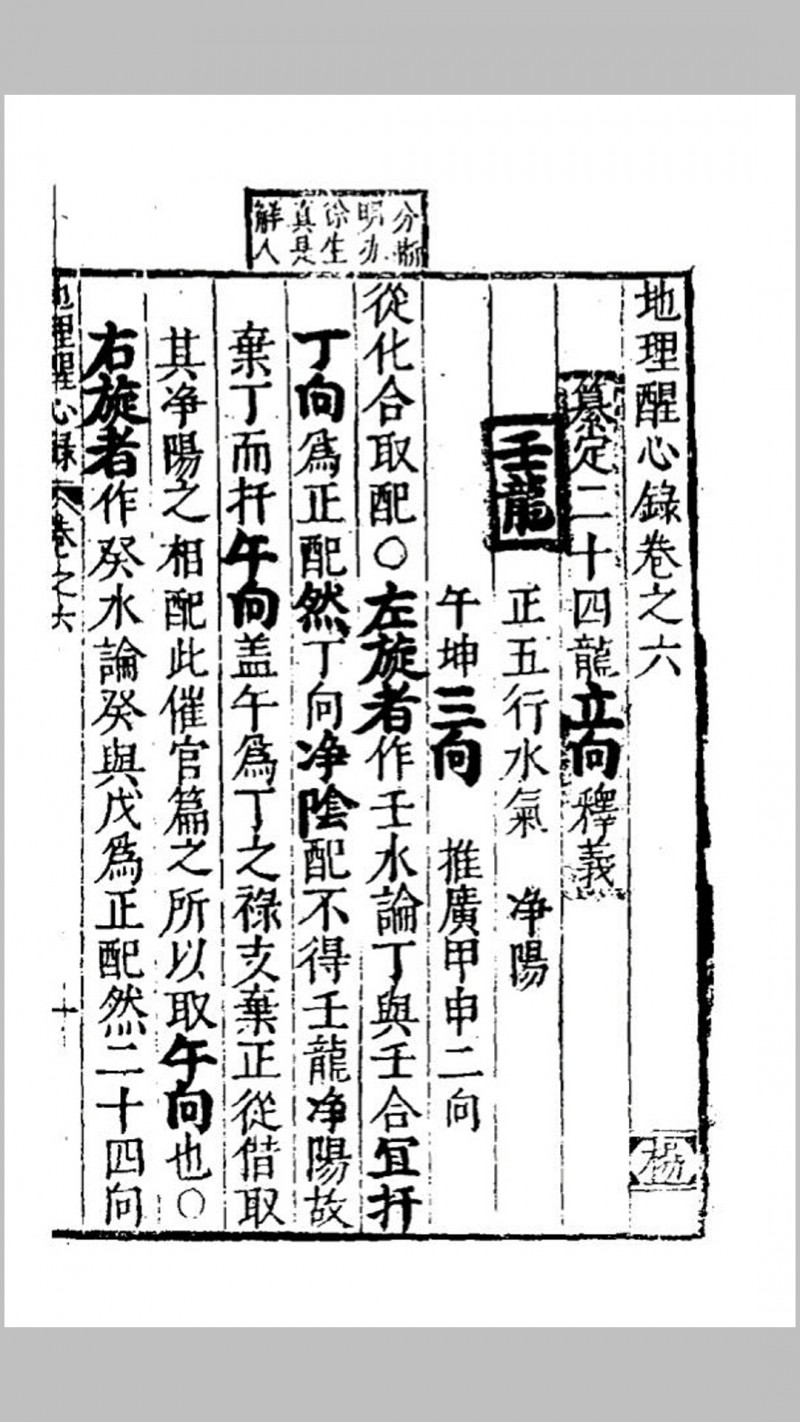 分斷
明
徐生
真是
解人
地理醒心錄卷之六 楊
纂定二十四龍立向釋義
壬龍 正五行水氣 净陽
午坤三向 推廣甲申二向
從化合取配○左旋者作壬水論丁與壬合宜扦
丁向爲正配然丁向净陰配不得壬龍净陽故
棄丁而扦午向盖午爲丁之祿支棄正從借取
其净陽之相配此催官篇之所以取午向也○
右旋者作癸水論癸與戊爲正配然二十四向
地理醒心錄 卷之六